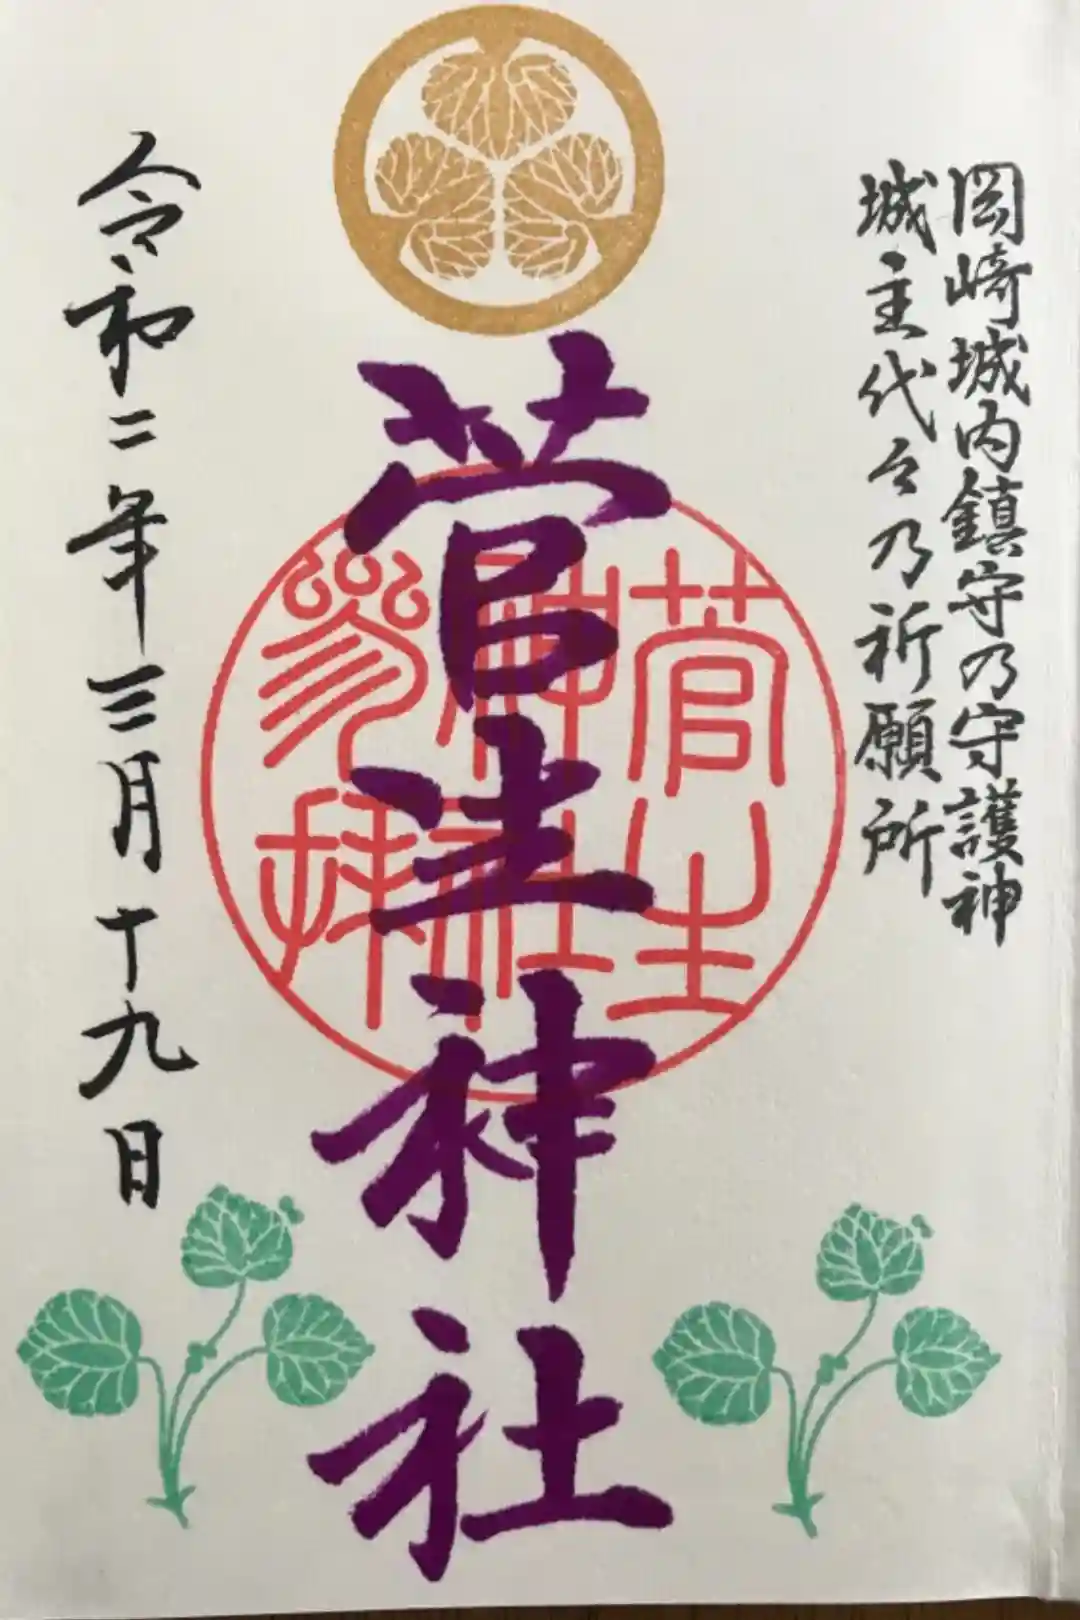 岡崎城内鎮守乃守護神
城主代々乃祈願所
菅生神社
菅生神社参拝
令和二年三月十九日